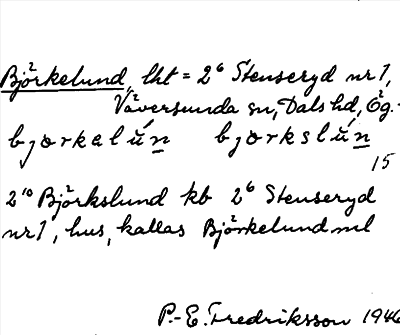 Björkelund, lht = 2⁶ Stenseryd nr 1,
Väversunda sn, Dals hd, Ög.
bjorkalŭn bjorkslŭn
15
2¹⁰ Björkslund kb 2⁶ Stenseryd
nr 1, hus, kallas Björkelund ml
P.-E. Fredriksson 1946